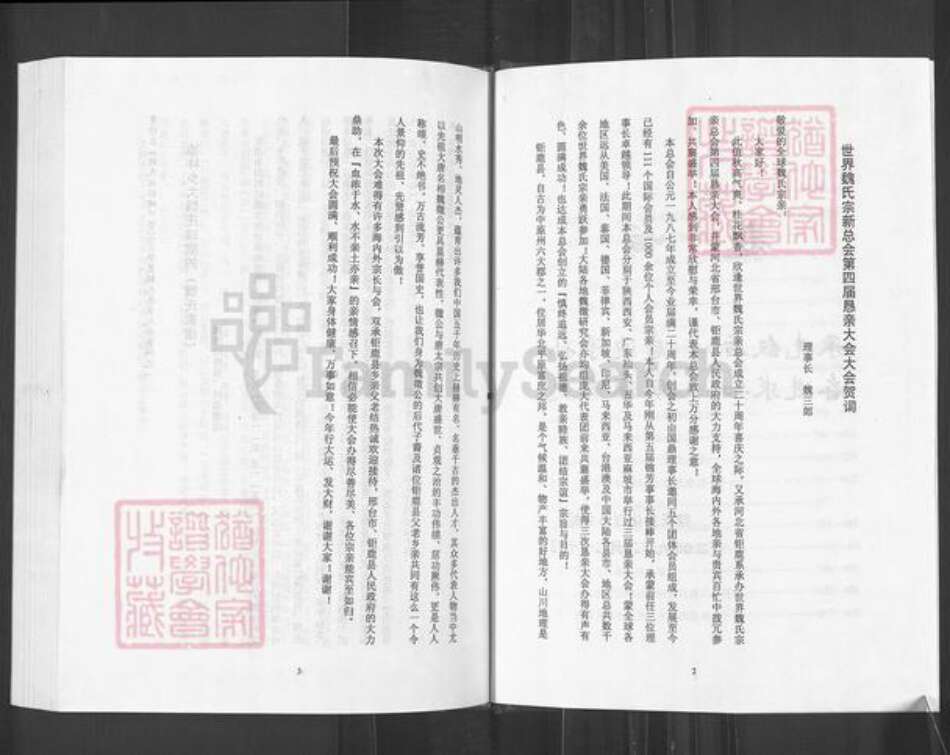 世界魏氏宗亲总会第四届恳亲大会大会贺词
理事长 魏三郎
敬爱的全球魏氏宗亲,
大家好!
此值秋高气爽、桂花飘香,欣逢世界魏氏宗亲总会成立二十周年喜庆之际,又承河北省钜鹿系承办世界魏氏宗
亲总会第四届恳亲大会,并蒙河北省邢台市、钜鹿县人民政府的大力支持,全球海内外各地亲与贵宾百忙中拨冗参
加、共襄盛举!本人感到非常欣慰与荣幸,谨代表本总会致上万分感谢之意!
本总会自公元一九八七年成立至今业届满二十周年,创会之初由国鼎理事长邀同五个团体会员组成,发展至今
已经有111个国际会员及1000余位个人会员宗亲!本人自今年刚从第五届锦芳事事长接棒开始,承蒙前任三位理
事长卓越领导!此期间本总会分别于陕西西安、广东汕头、五华及马来西亚麻坡市举行过三届恳亲大会!蒙全球各
地区远从美国、法国、泰国、德国、菲律宾、新加坡、印尼、马来西亚、台港澳及中国大陆各县市、地区总共数千
余位世界魏氏宗亲勇跃参加!大陆各地魏微研究会亦均组庞大代表团前来共襄盛举,使得三次恳亲大会办得有声有
色,圆满成功!也达成本总会创立的『慎终追远、弘扬祖德、敦亲睦族、团结宗谊』宗旨与目的!
钜鹿县,自古为中原州六大郡之一,位居华北平原富庶之邦,是个气候温和、物产丰富的好地方,山川地理是
2
山明水秀,地灵人杰,蕴育出许多我们中国五千年历史上赫赫有名、名垂千古的杰出人才,其众多代表人物当中尤
以先祖大唐名相魏徵公更具显赫代表性,徵公与唐太宗共创大唐盛世,贞观之治的丰功伟绩,居功厥伟,更是人人
称颂、史不绝书,万古流芳、享誉国史,也让我们身为魏徵公的后代子裔及诸位钜鹿县父老乡亲共同有这么一个令
人景仰的先祖、先贤感到引以为傲!
本次大会难得有许多海内外宗长与会,双承钜鹿县乡亲父老结热诚欢迎接待,邢台市、钜鹿县人民政府的大力
鼎助,在『血浓于水、水不亲土亦亲』的亲情感召下,相信必能使大会办得尽善尽美、各位宗亲能宾至如归。
最后预祝大会圆满、顺利成功!大家身体健康、万事如意!今年行大运、发大财,谢谢大家!谢谢!
3
FamilySearch